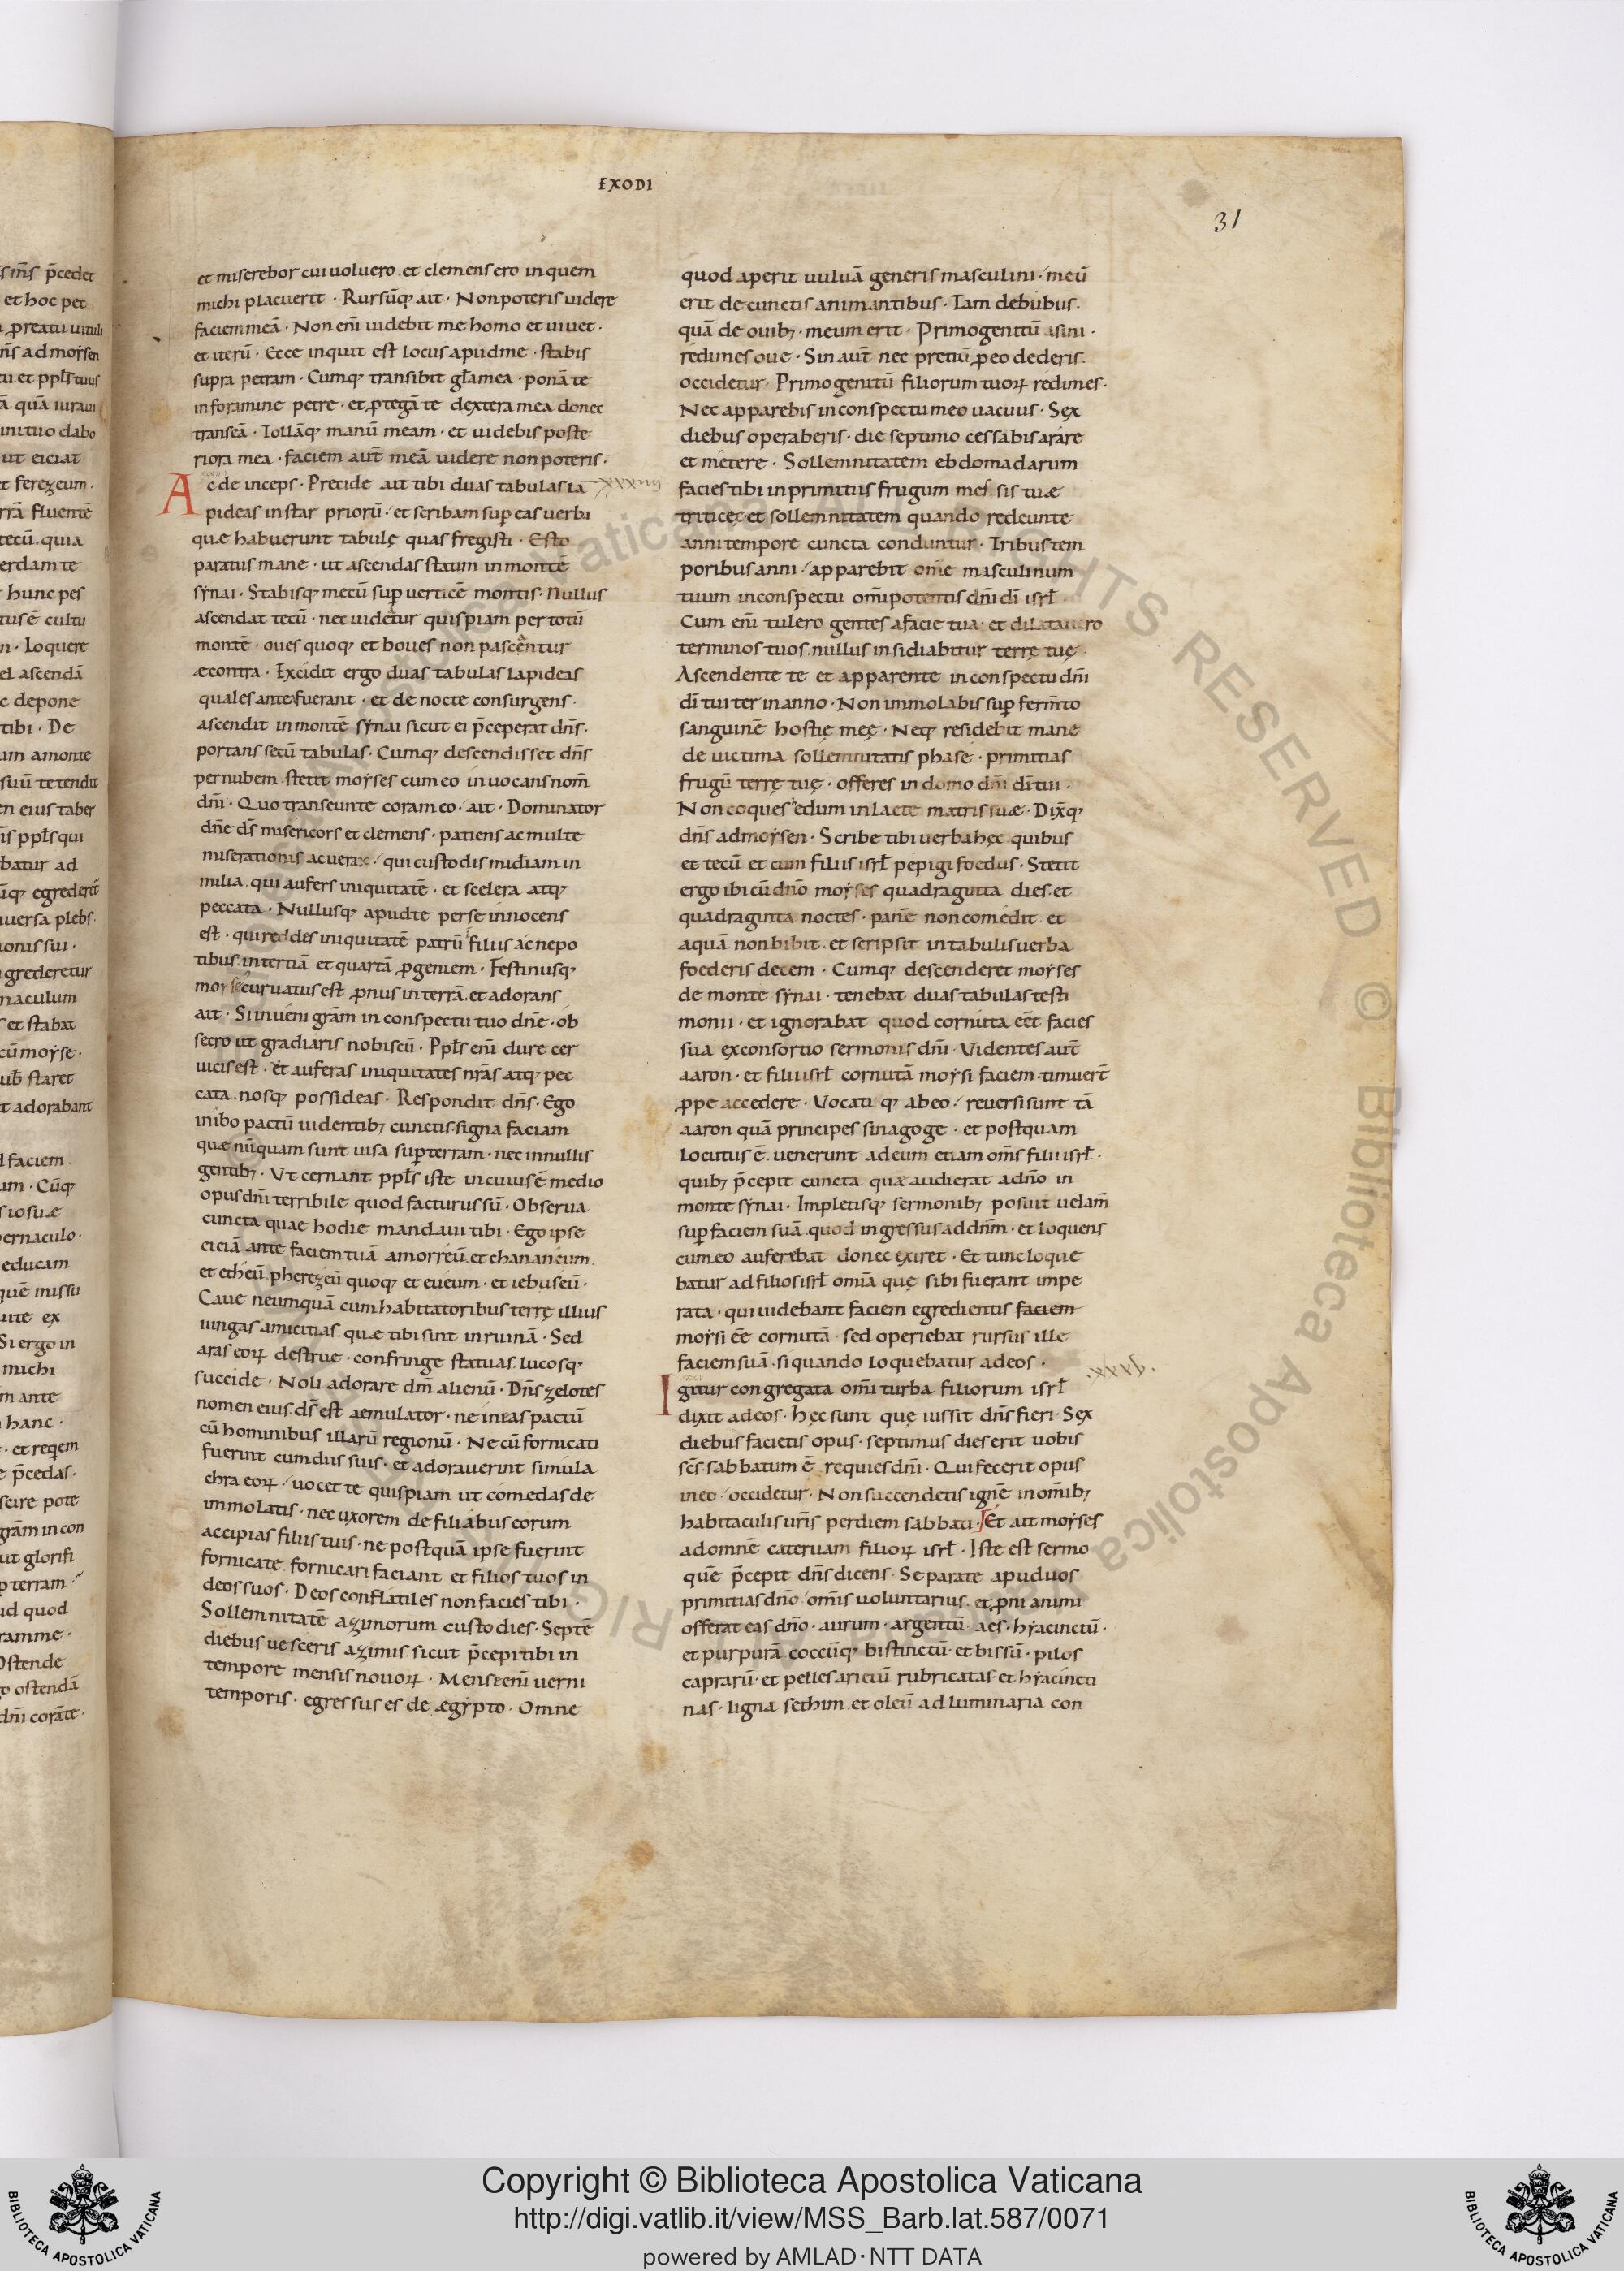 EXODI
31
et miserebor cui uoluero. et clemens ero in quem
michi placuerit · Rursūq; ait · Non poteris uidere
faciem meā · Non eni͞ uidebit me homo et uiuet ·
et iterū · Ecce inquit est locus apud me · stabis
supra petram · Cumq; transibit gl̄a mea · ponā te
in foramine petre · et ꝓtegā te dextera mea donec
transeā · Tollāq; manū meam · et uidebis poste
riora mea · faciem aut̄ meā uidere non poteris ·
Ac de inceps · Precide ait tibi duas tabulas la xxxiiii
pideas instar priorū · et scribam sup̄ eas uerba
quæ habuerunt tabulę quas fregisti · Esto
paratus mane · ut ascendas statim in montē
sẏnai · Stabisq; mecū sup̄ uerticē montis · Nullus
ascendat tecū · nec uideatur quispiam per totū
montē · oues quoq; et boues non pascantur
æcontra · Excidit ergo duas tabulas lapideas
quales ante fuerant · et de nocte consurgens ·
ascendit in montē sẏnai sicut ei p̄ceperat dn̄s ·
portans secū tabulas · Cumq; descendisset dn̄s
per nubem · stetit moẏses cum eo inuocans nom̄
dn̄i · Quo transeunte coram eo · ait · Dominator
dn̄e ds̄ misericors et clemens · patiens ac multe
miserationis ac uerax · qui custodis mi͞diam in
milia · qui aufers iniquitatē · et scelera atq;
peccata · Nullusq; apud te per se innocens
est · qui reddes iniquitatē patrū filiis ac nepo
tibus · in tertiā et quartā ꝓgeniem · Festinusq;
moẏses curuatus est ꝓnus in terrā · et adorans
ait · Si inueni gr̄am in conspectu tuo dn̄e · ob
secro ut gradiaris nobiscū · Ppl̄s eni͞ dure cer
uicis est · et auferas iniquitates nr̄as atq; pec
cata · nosq; possideas · Respondit dn̄s · Ego
inibo pactū uidentib; cunctis · signa faciam
quæ nūquam sunt uisa sup̄ terram · nec in nullis
gentib; · Vt cernant ppl̄s iste in cuius ē medio
opus dn̄i terribile quod facturus sū · Obserua
cuncta quae hodie mandaui tibi · Ego ipse
eiciā ante faciem tuā amorreū · et chananeum ·
et etheū · pherezeū quoq; et eueum · et iebuseū ·
Caue ne umquā cum habitatoribus terrę illius
iungas amicitias · quæ tibi sint in ruinā · Sed
aras eoꝝ destrue · confringe statuas · lucosq;
succide · Noli adorare dm̄ alienū · Dn̄s zelotes
nomen eius · ds̄ est aemulator · ne ineas pactū
cū hominibus illarū regionū · Ne cū fornicati
fuerint cum diis suis · et adorauerint simula
chra eoꝝ · uocet te quispiam ut comedas de
immolatis · nec uxorem de filiabus eorum
accipias filiis tuis · ne postquā ipse fuerint
fornicate · fornicari faciant et filios tuos in
deos suos · Deos conflatiles non facies tibi ·
Sollemnitatē azimorum custodies · Septē
diebus uesceris azimis · sicut p̄cepi tibi in
tempore mensis nouoꝝ · Mense eni͞ uerni
temporis · egressus es de ægẏpto · Omne
quod aperit uuluā generis masculini · meū
erit de cunctis animantibus · Tam de bubus ·
quā de ouib; · meum erit · Primogenitū asini ·
redimes oue · Sin aut̄ nec pretiū ꝓ eo dederis ·
occidetur · Primogenitū filiorum tuoꝝ redimes ·
Nec apparebis in conspectu meo uacuus · Sex
diebus operaberis · die septimo cessabis arare
et metere · Sollemnitatem ebdomadarum
facies tibi in primitiis frugum messis tuæ
triticeę · et sollemnitatem quando redeunte
anni tempore cuncta conduntur · Tribus tem
poribus anni · apparebit om̄e masculinum
tuum in conspectu om̄ipotentis dn̄i di͞ isrl̄ ·
Cum eni͞ tulero gentes a facie tua · et dilatauero
terminos tuos · nullus insidiabitur terrę tuę ·
Ascendente te et apparente in conspectu dn̄i
di͞ tui ter in anno · Non immolabis sup̄ ferm̄to
sanguinē hostię meę · Neq; residebit mane
de uictima sollemnitatis phase · primitias
frugū terrę tuę · offeres in domo dn̄i di͞ tui ·
Non coques hedum in lacte matris suæ · Dix̄q;
dn̄s ad moẏsen · Scribe tibi uerba hęc quibus
et tecū et cum filiis isrl̄ pepigi foedus · Stetit
ergo ibi cū dn̄o moẏses quadraginta dies · et
quadraginta noctes · panē non comedit · et
aquā non bibit · et scripsit in tabulis uerba
foederis decem · Cumq; descenderet moẏses
de monte sẏnai · tenebat duas tabulas testi
monii · et ignorabat quod cornuta eēt facies
sua ex consortio sermonis dn̄i · Videntes aut̄
aaron · et filii isrl̄ cornutā moẏsi faciem · timuer̄t
ꝓpe accedere · Vocati q; ab eo · reuersi sunt tā
aaron quā principes sinagoge · et postquam
locutus ē · uenerunt ad eum etiam om̄s filii isrl̄ ·
quib; p̄cepit cuncta quæ audierat a dn̄o in
monte sẏnai · Impletisq; sermonib; posuit uelam̄
sup̄ faciem suā · quod ingressus ad dn̄m · et loquens
cum eo auferebat donec exiret · Et tunc loque
batur ad filios isrl̄ omīa quę sibi fuerant impe
rata · qui uidebant faciem egredientis faciem
moẏsi eē cornutā · sed operiebat rursus ille
faciem suā · si quando loquebatur ad eos ·
Igitur congregata om̄i turba filiorum isrl̄ ·xxxv·
dixit ad eos · hęc sunt quę iussit dn̄s fieri · Sex
diebus facietis opus · septimus dies erit uobis
sc̄s · sabbatum ē requies dn̄i · Qui fecerit opus
in eo · occidetur · Non succendetis ignē in om̄ib;
habitaculis ur̄is per diem sabbati · Et ait moẏses
ad omnē cateruam filioꝝ isrl̄ · Iste est sermo
quē p̄cepit dn̄s dicens · Separate apud uos
primitias dn̄o · om̄is uoluntarius · et ꝓni animi
offerat eas dn̄o · aurum · argentū · aes · hẏacinctū ·
et purpurā · coccūq; bistinctū · et bissū · pilos
caprarū · et pelles arietū rubricatas · et hẏacincti
nas · ligna sethim · et oleū ad luminaria con
Copyright © Biblioteca Apostolica Vaticana
http://digi.vatlib.it/view/MSS_Barb.lat.587/0071
powered by AMLAD·NTT DATA